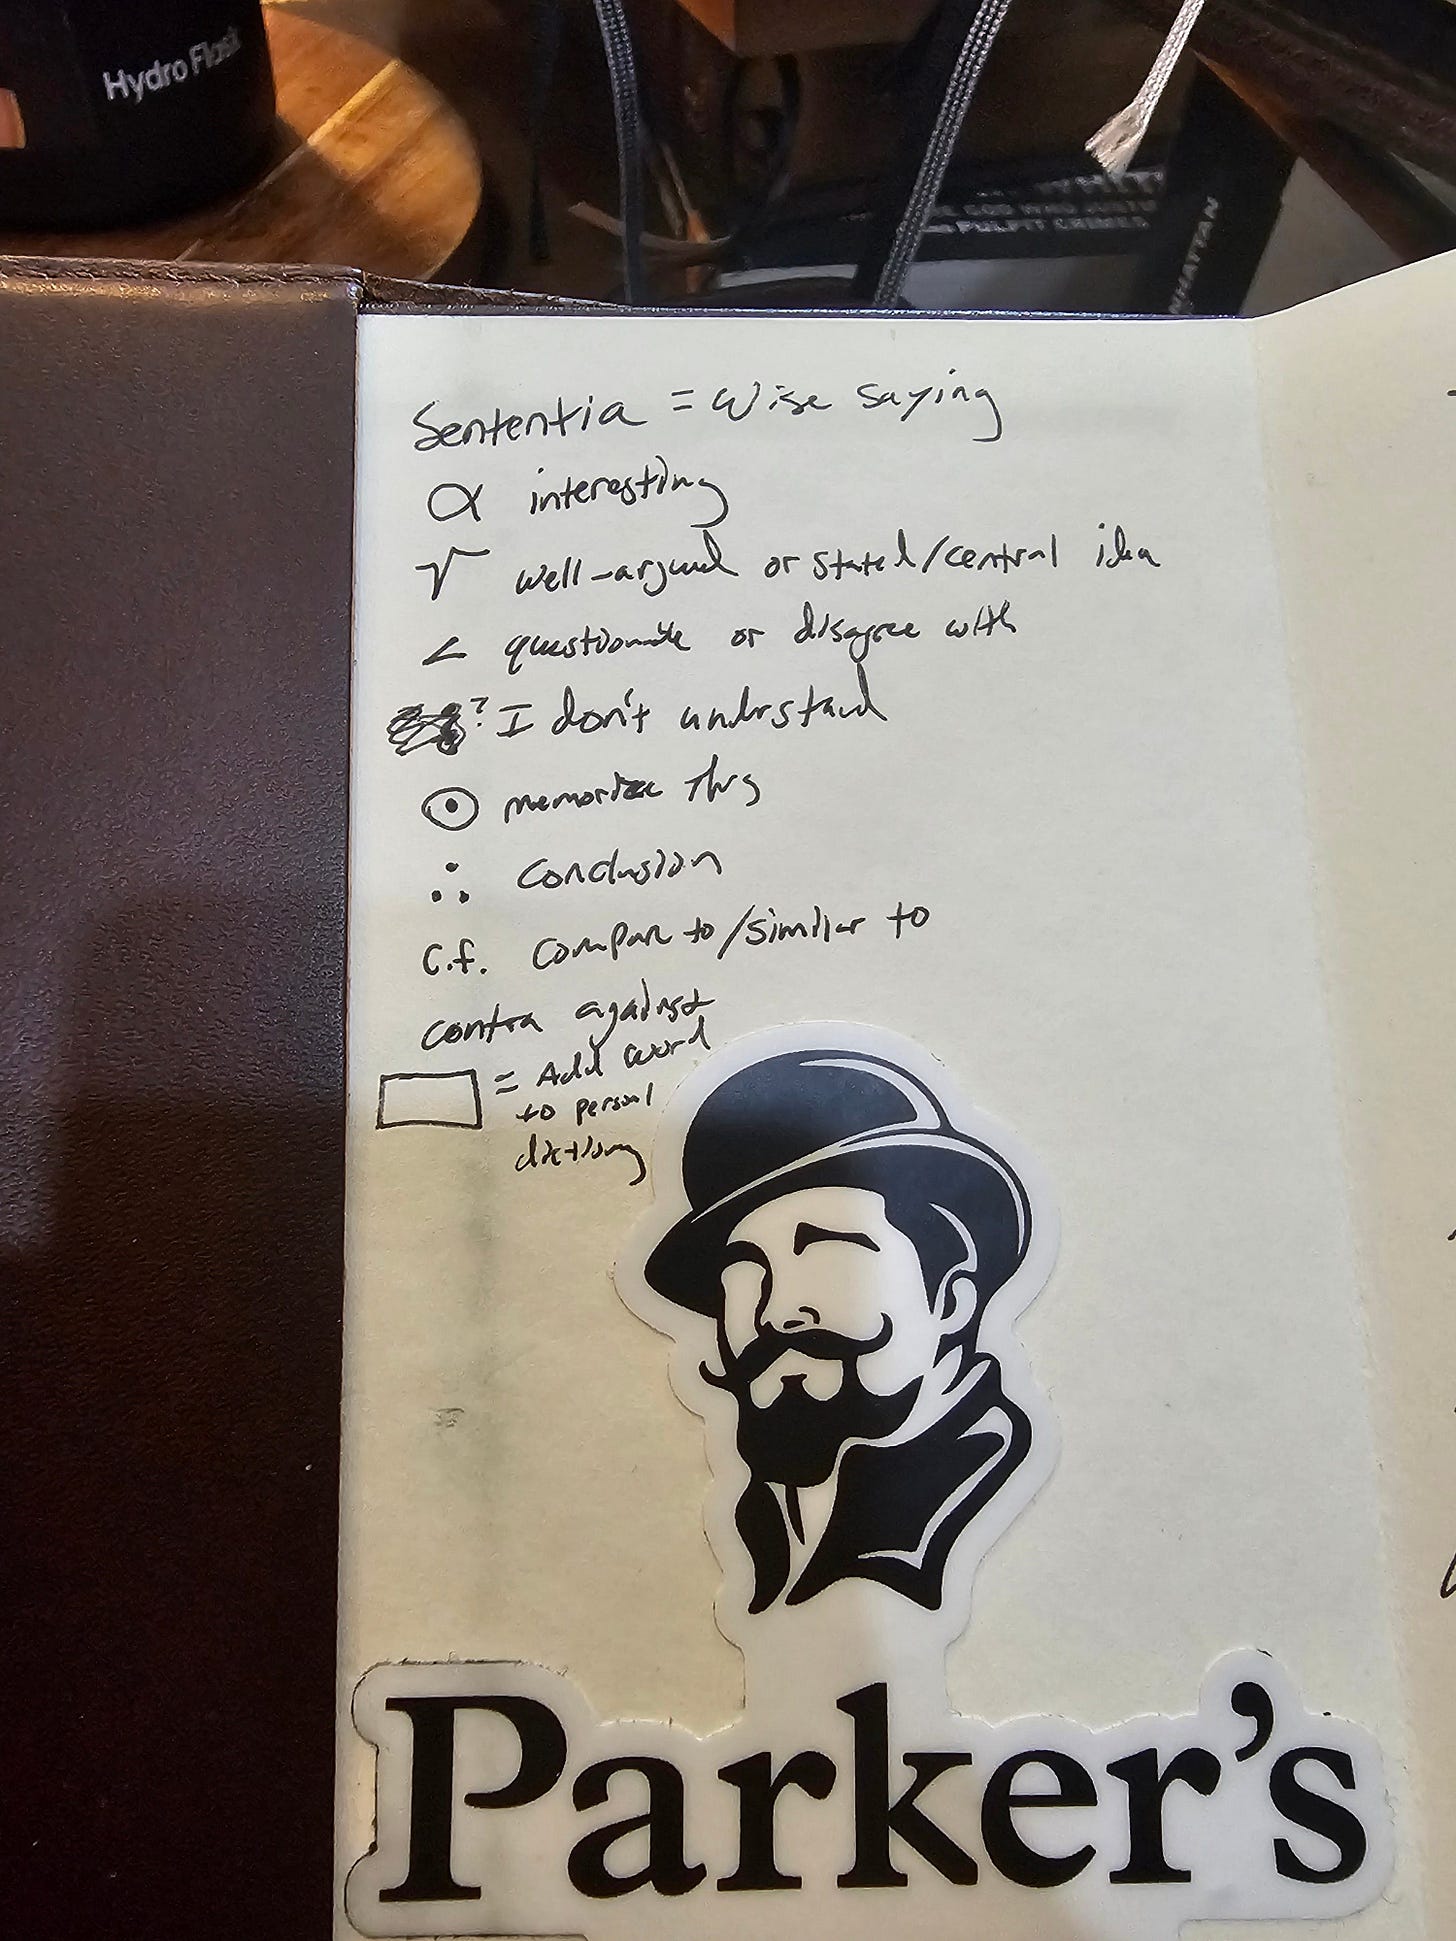 Hydro Flask
PULPIT CRIMES
Sententia = Wise saying
α interesting
√ well-argued or stated/central idea
< questionable or disagree with
? I don't understand
⊙ memorize this
∴ Conclusion
c.f. Compare to/similar to
contra against
▭ = Add word
to personal
dictionary
Parker's